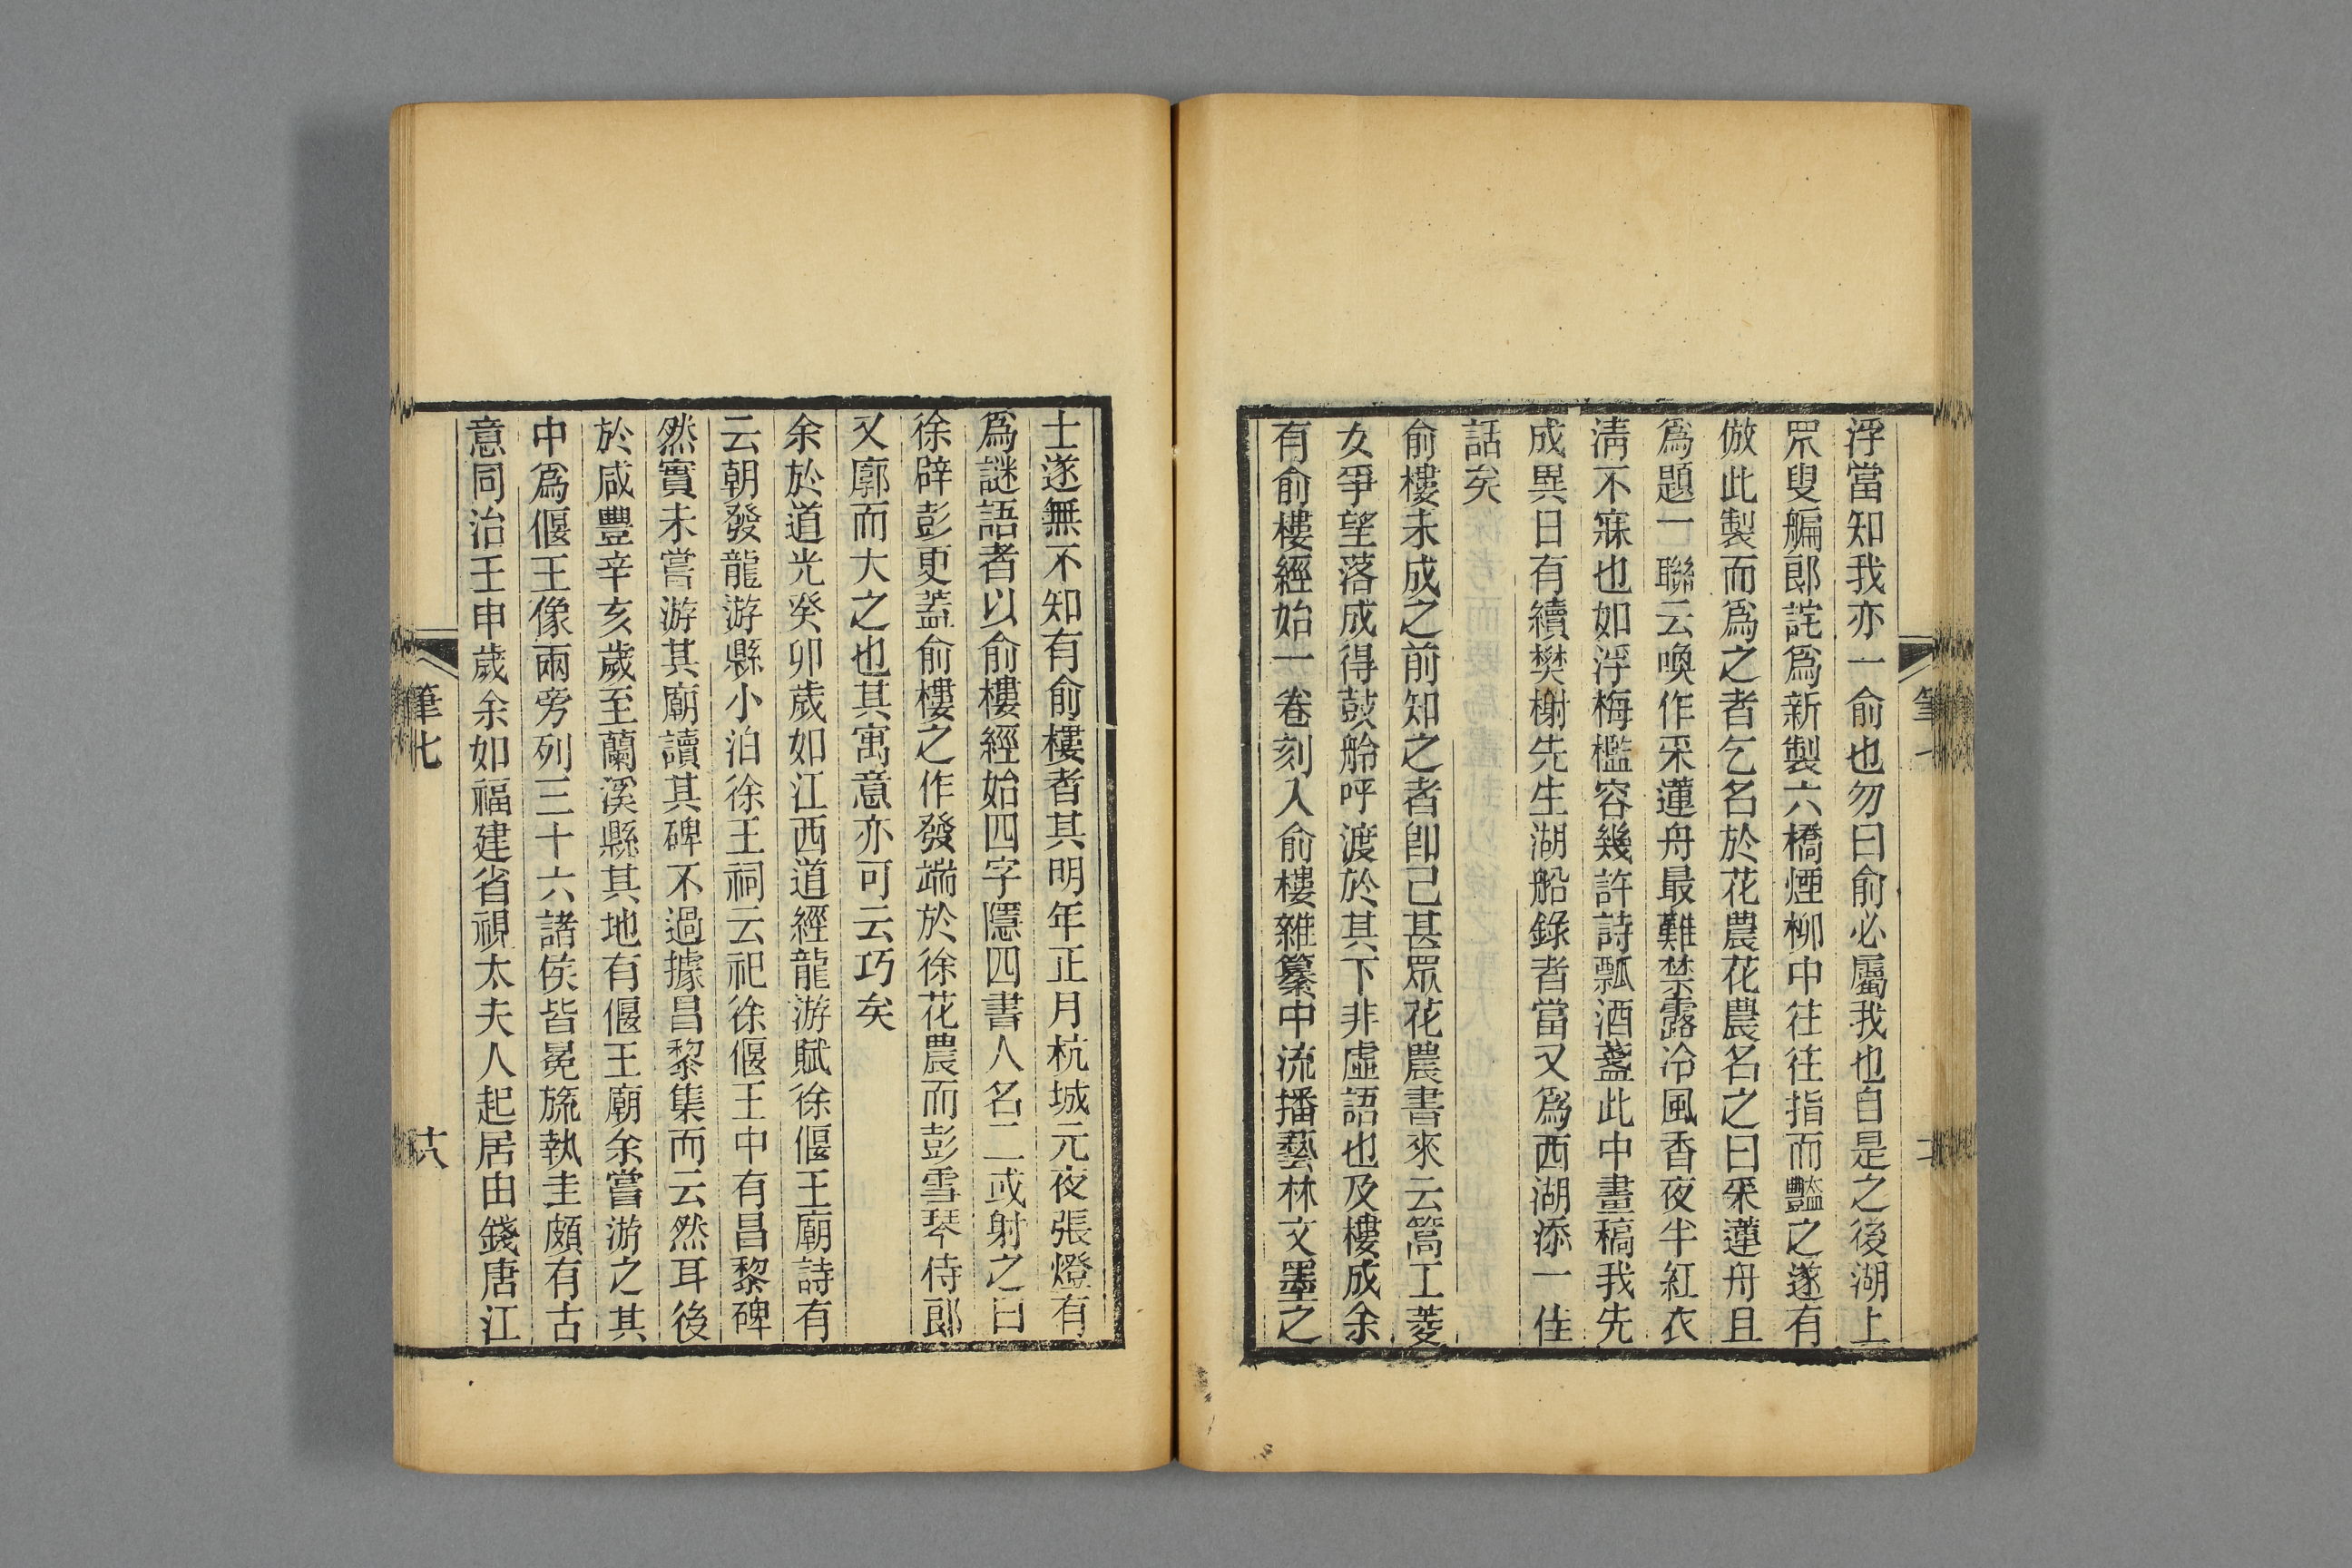 浮當知我亦一俞也勿曰俞必屬我也自是之後湖上
眾叟艑郎詫爲新製六橋煙柳中往往指而豔之遂有
倣此製而爲之者乞名於花農花農名之曰采蓮舟且
爲題一聯云喚作采蓮舟最難禁露冷風香夜半紅衣
淸不寐也如浮梅檻容幾許詩瓢酒盞此中畫稿我先
成異日有續樊榭先生湖船錄者當又爲西湖添一佳
話矣
俞樓未成之前知之者卽已甚眾花農書來云篙工菱
女爭望落成得鼓舲呼渡於其下非虛語也及樓成余
有俞樓經始一卷刻入俞樓雜纂中流播藝林文墨之
士遂無不知有俞樓者其明年正月杭城元夜張燈有
爲謎語者以俞樓經始四字隱四書人名二或射之曰
徐辟彭更蓋俞樓之作發端於徐花農而彭雪琴侍郎
又廓而大之也其寓意亦可云巧矣
余於道光癸卯歲如江西道經龍游賦徐偃王廟詩有
云朝發龍游縣小泊徐王祠云祀徐偃王中有昌黎碑
然實未嘗游其廟讀其碑不過據昌黎集而云然耳後
於咸豐辛亥歲至蘭溪縣其地有偃王廟余嘗游之其
中爲偃王像兩旁列三十六諸侯皆冕旒執圭頗有古
意同治壬申歲余如福建省視太夫人起居由錢唐江
筆七
十八